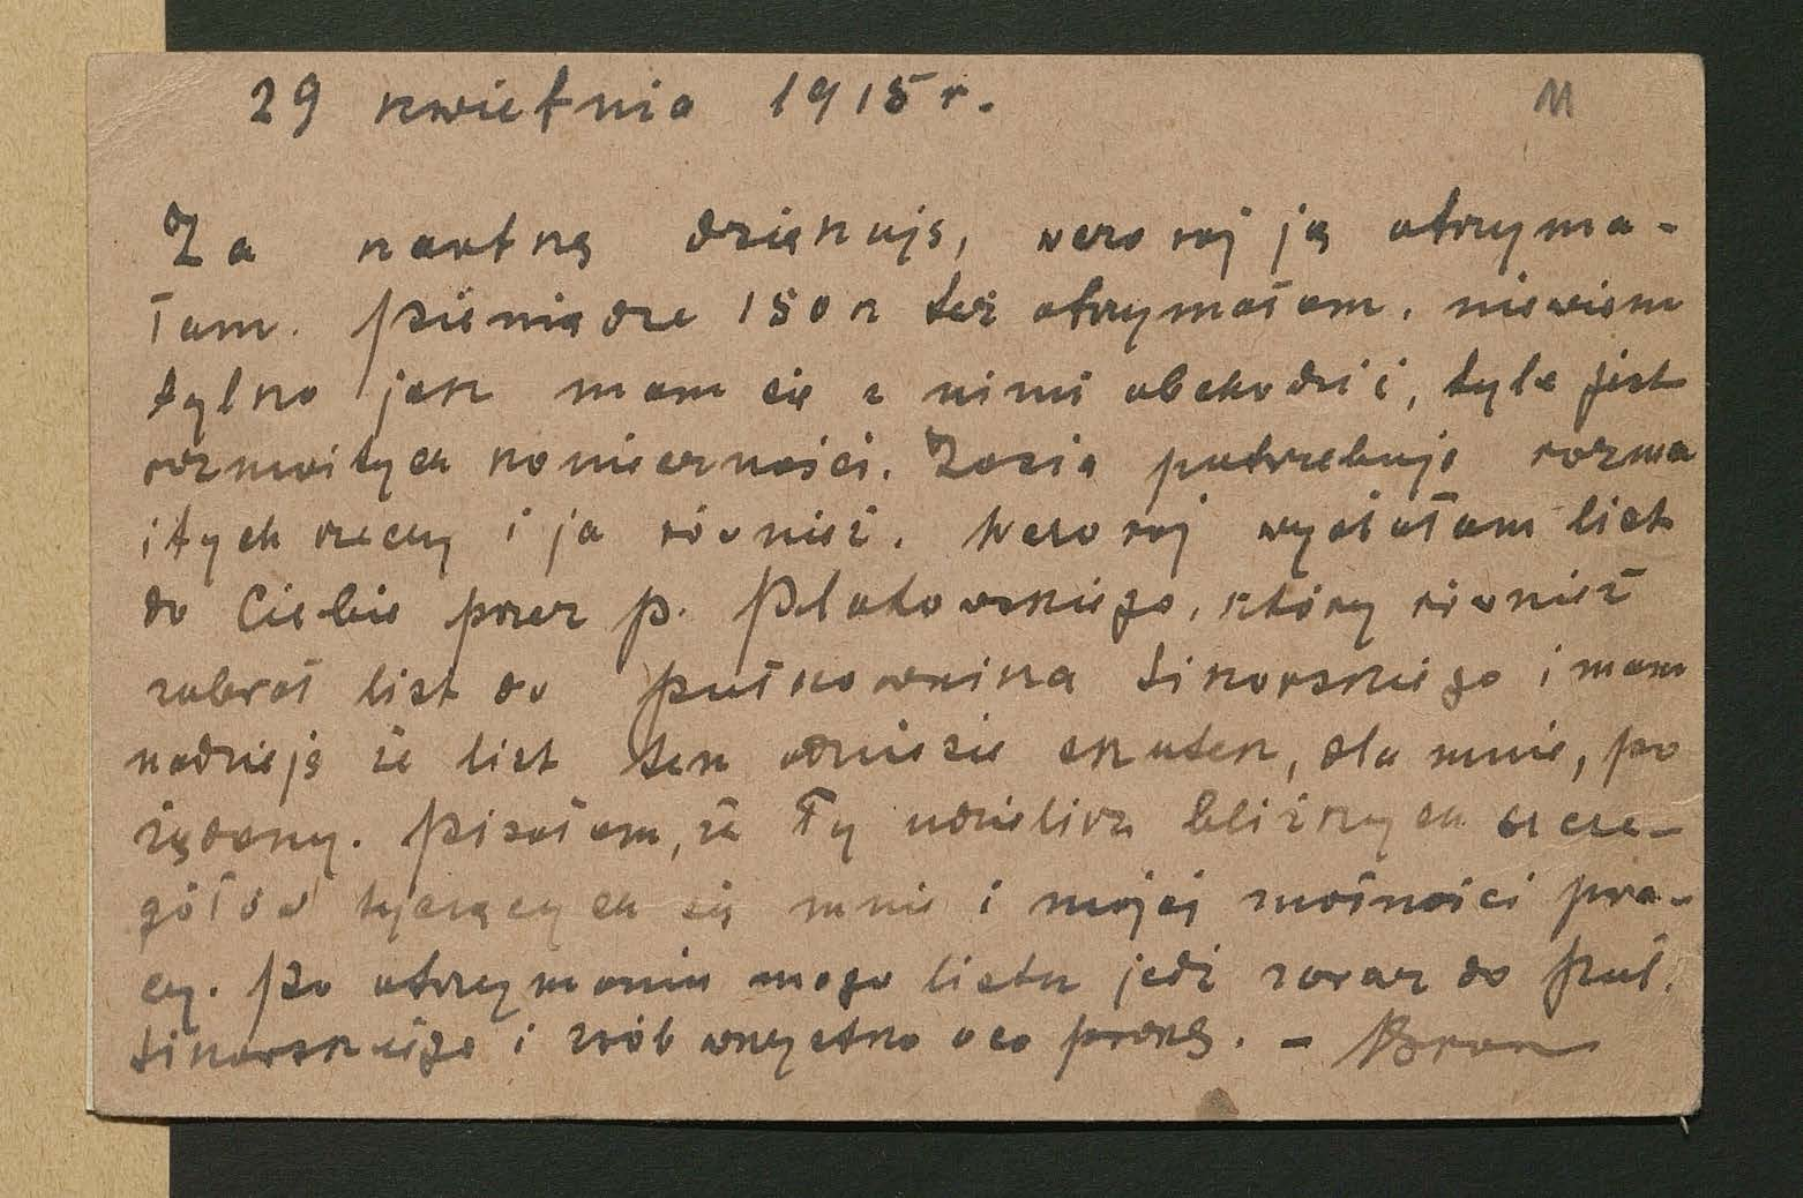 29 kwietnia 1915 r.
11
Za kartkę dziękuję, wczoraj ją otrzyma-
łam. Pieniądze 150 k też otrzymałam, niewiem
tylko jak mam się z nimi obchodzić, tyle jest
rozmaitych konieczności. Zosia potrzebuje rozma
itych rzeczy i ja również. Wczoraj wysłałam list
do Ciebie przez p. Plutowskiego, który również
zabrał list do pułkownika Sikorskiego i mam
nadzieję że list ten odniesie skutek, dla mnie, po
żądany. Pisałam, że Ty udzielisz bliższych szcze-
gółów tyczących się mnie i mojej możności pra-
cy. Po otrzymaniu mego listu jedź zaraz do Puł.
Sikorskiego i zrób wszystko o co proszę. - Bron